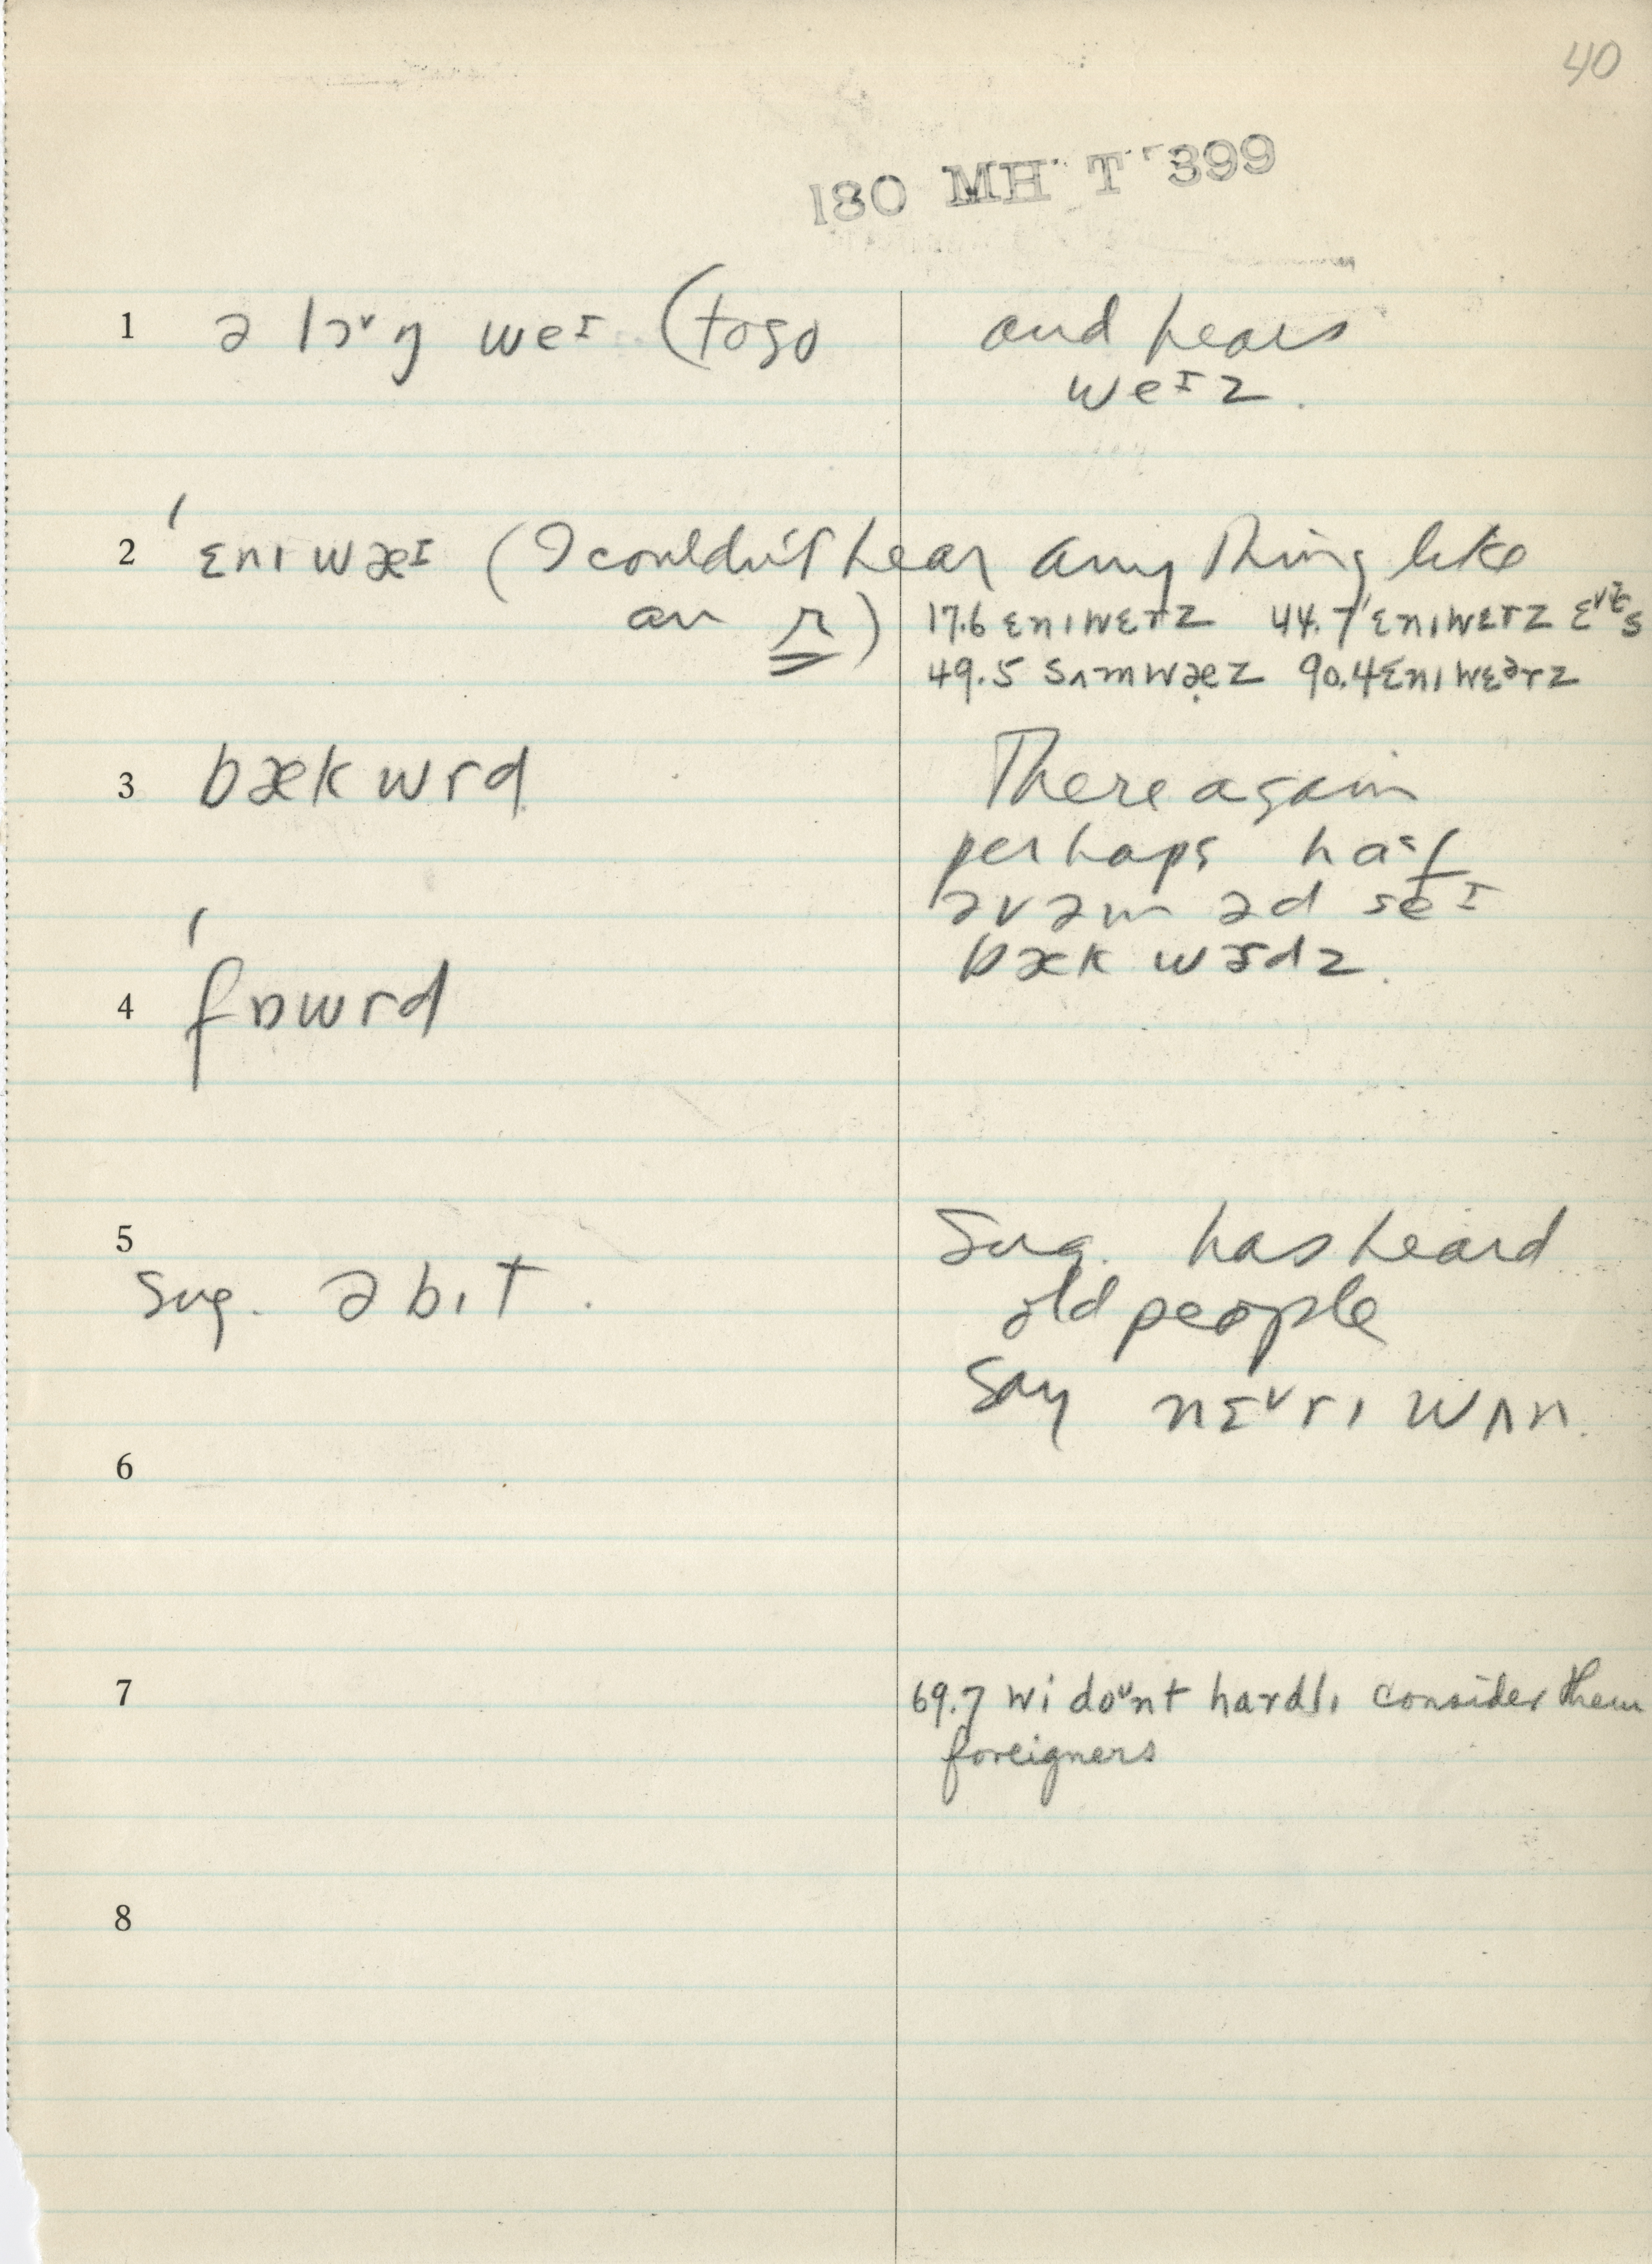 40
180 MH T 399
1 ə lɔᵛŋ weɪ (to go and hears
weɪz.
2 ˈɛnɪwæɪ (I couldn't hear anything like
an r)
17.6 ɛnɪwɛrz 44.7 ˈɛnɪwɛrz
49.5 sʌmwæz 90.4 ɛnɪwɛᵊrz
3 bækwrd There again
perhaps half
əvəm əd seɪ
bækwərdz.
4 ˈfɒwrd
5 Sug. has heard
sug. ə bɪt. old people
say nɛᵛrɪ wʌn.
6
7 69.7 wi doᵘnt hardlɪ consider them
foreigners
8